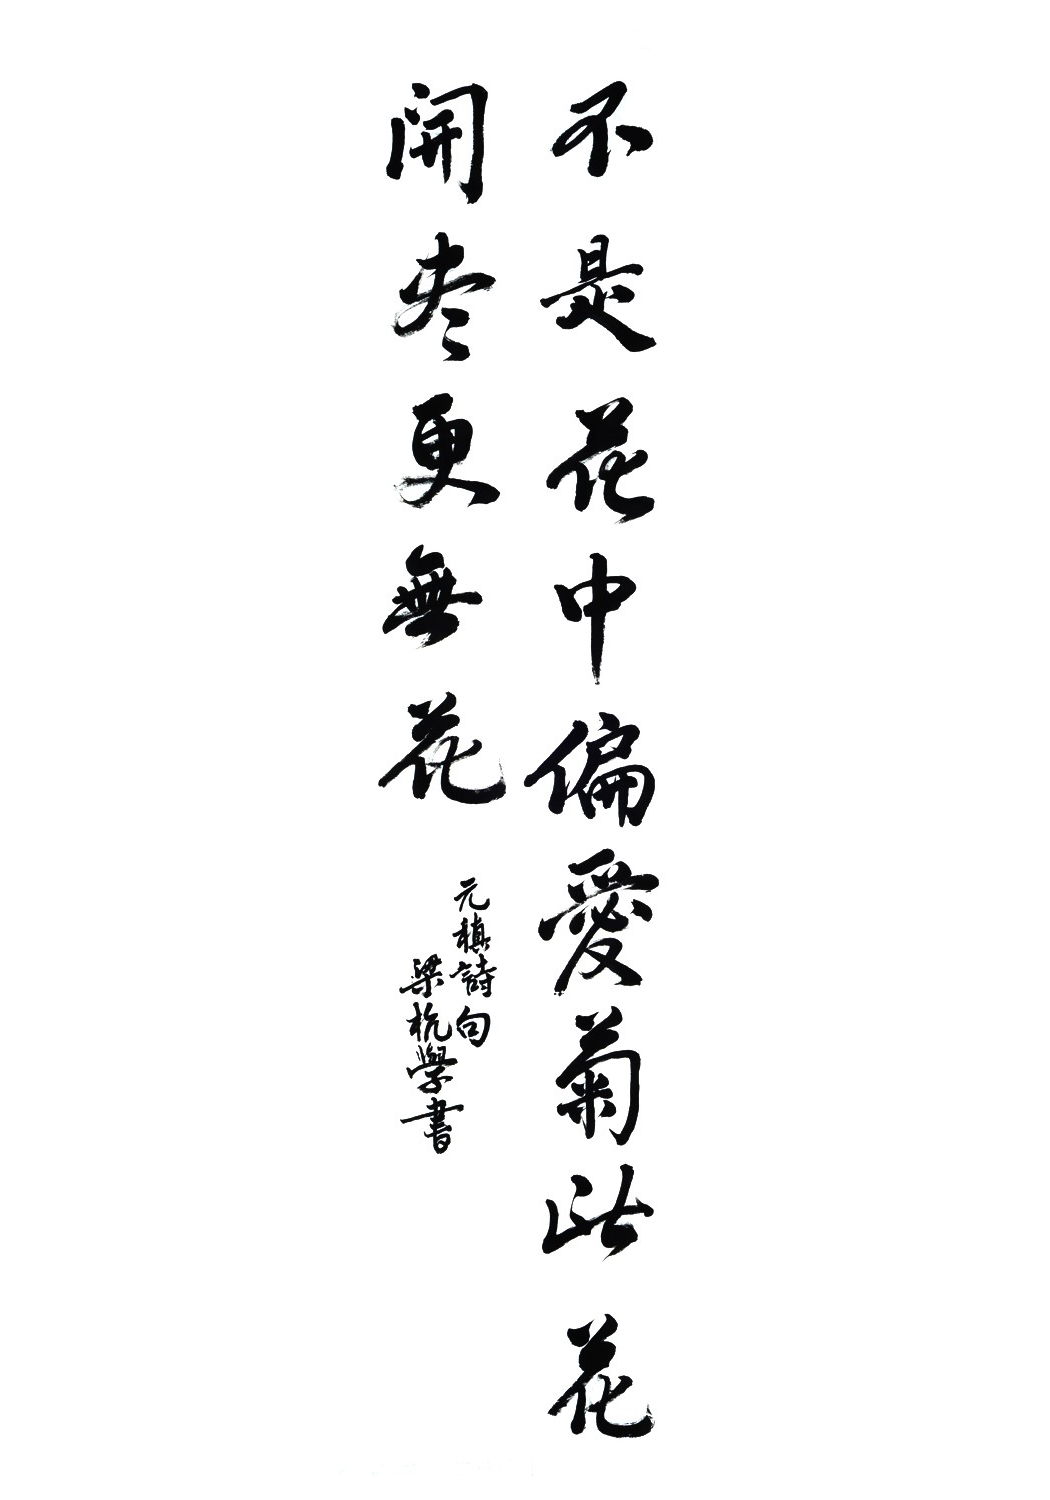 不是花中偏愛菊此花
開尽更無花
元稹詩句
梁杭學書